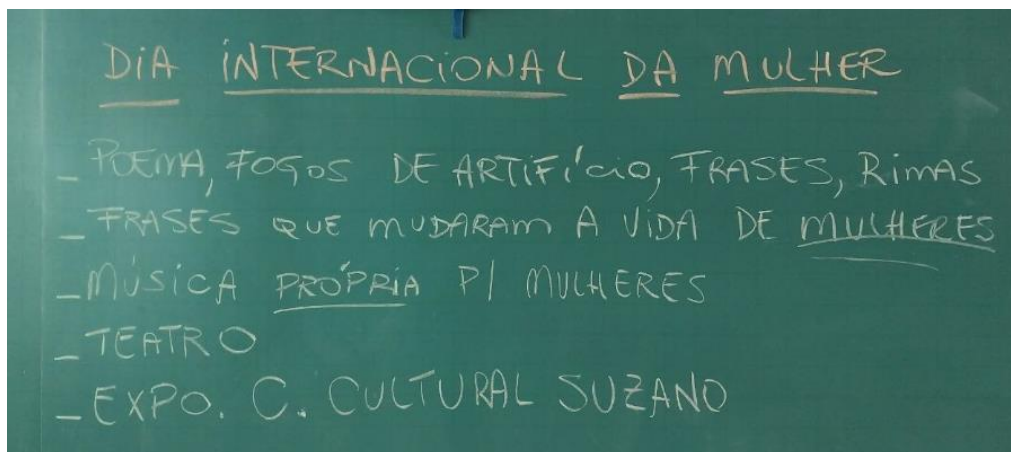 DIA INTERNACIONAL DA MULHER
_ POEMA, FOGOS DE ARTIFÍCIO, FRASES, RIMAS
_ FRASES QUE MUDARAM A VIDA DE MULHERES
_ MÚSICA PRÓPRIA P/ MULHERES
_ TEATRO
_ EXPO. C. CULTURAL SUZANO